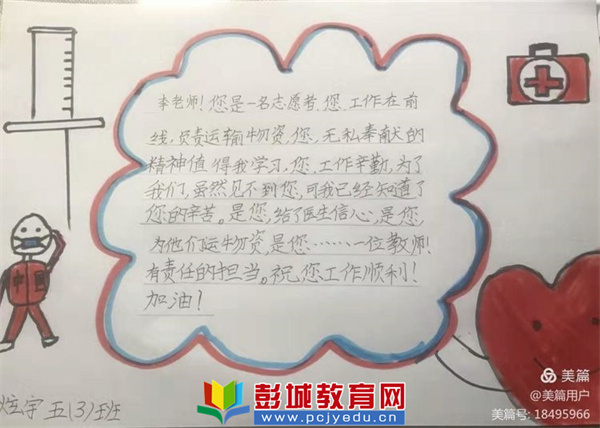 李老师！您是一名志愿者，您，工作在前
线，负责运输物资，您，无私奉献的
精神值得我学习，您，工作辛勤，为了
我们，虽然见不到您，可我已经知道了
您的辛苦。是您，给了医生信心，是您，
为他们运物资，是您……一位教师！
有责任的担当。祝，您工作顺利！
加油！
中国
炫宇 五(3)班
彭城教育网
www.pcjyedu.cn
美篇
@美篇用户
美篇号: 18495966